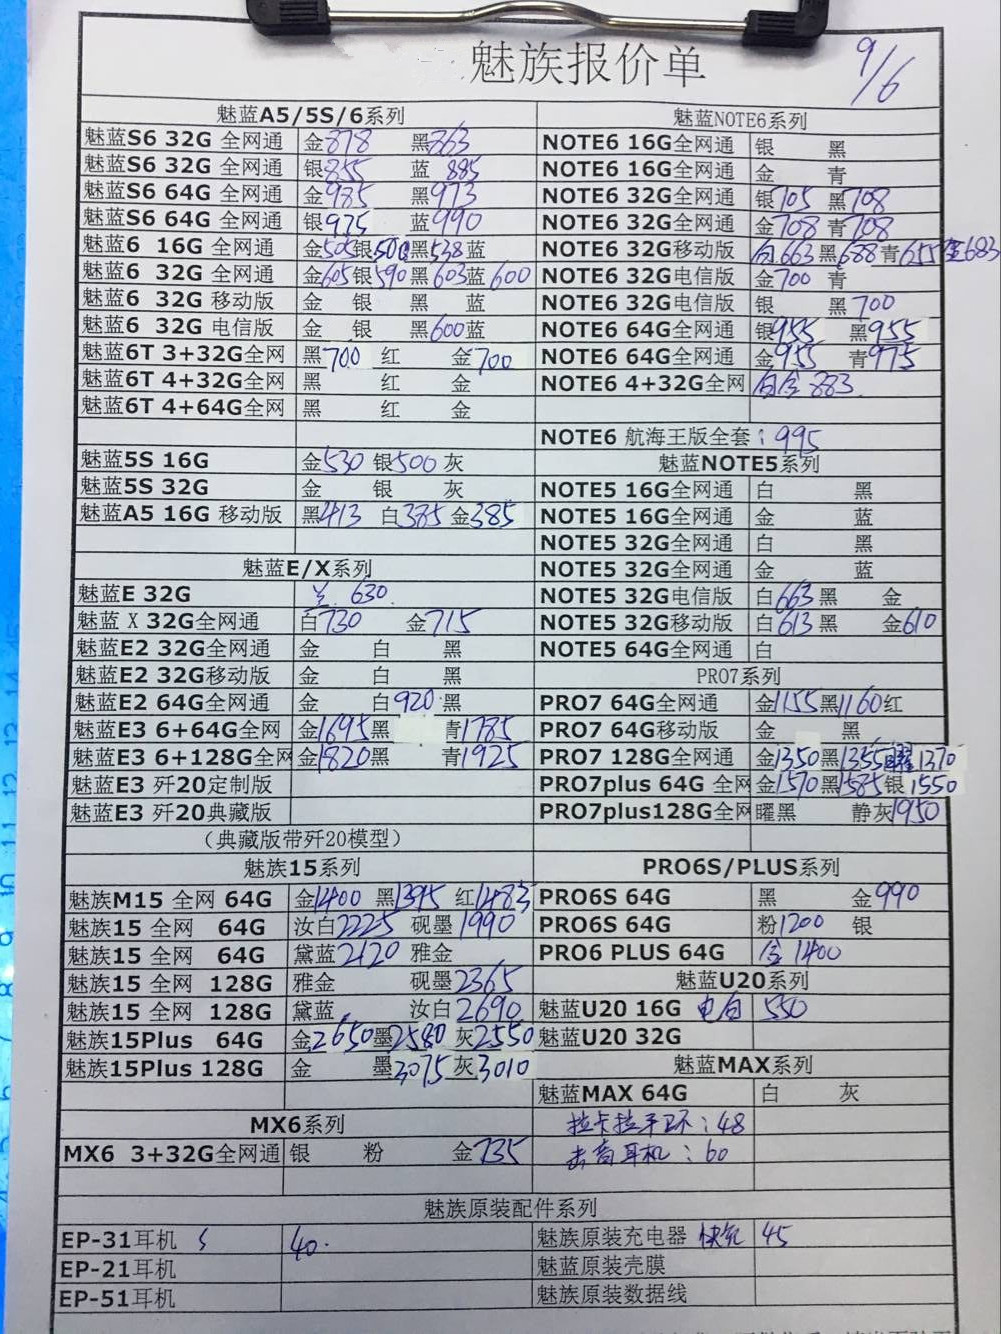 魅族报价单 9/6
魅蓝A5/5S/6系列
魅蓝S6 32G 全网通 金878 黑863
魅蓝S6 32G 全网通 银855 蓝 885
魅蓝S6 64G 全网通 金985 黑973
魅蓝S6 64G 全网通 银975 蓝990
魅蓝6 16G 全网通 金505银500黑538蓝
魅蓝6 32G 全网通 金605银590黑603蓝600
魅蓝6 32G 移动版 金 银 黑 蓝
魅蓝6 32G 电信版 金 银 黑600蓝
魅蓝6T 3+32G全网 黑700 红 金700
魅蓝6T 4+32G全网 黑 红 金
魅蓝6T 4+64G全网 黑 红 金
魅蓝5S 16G 金530 银500 灰
魅蓝5S 32G 金 银 灰
魅蓝A5 16G 移动版 黑413 白385 金385
魅蓝E/X系列
魅蓝E 32G 630
魅蓝X 32G全网通 白730 金715
魅蓝E2 32G全网通 金 白 黑
魅蓝E2 32G移动版 金 白 黑
魅蓝E2 64G全网通 金 白920 黑
魅蓝E3 6+64G全网 金1695黑 青1785
魅蓝E3 6+128G全网 金1820黑 青1925
魅蓝E3 歼20定制版
魅蓝E3 歼20典藏版
（典藏版带歼20模型）
魅族15系列
魅族M15 全网 64G 金1400 黑1395 红1483
魅族15 全网 64G 汝白2225 砚墨1990
魅族15 全网 64G 黛蓝2120 雅金
魅族15 全网 128G 雅金 砚墨2365
魅族15 全网 128G 黛蓝 汝白2690
魅族15Plus 64G 金2650墨2580 灰2550
魅族15Plus 128G 金 墨3075灰3010
MX6系列
MX6 3+32G全网通 银 粉 金735
魅蓝NOTE6系列
NOTE6 16G全网通 银 黑
NOTE6 16G全网通 金 青
NOTE6 32G全网通 银705 黑708
NOTE6 32G全网通 金708 青708
NOTE6 32G移动版 白663黑688青655金683
NOTE6 32G电信版 金700 青
NOTE6 32G电信版 银 黑700
NOTE6 64G全网通 银955 黑955
NOTE6 64G全网通 金955 青975
NOTE6 4+32G全网 白金 883
NOTE6 航海王版全套：995
魅蓝NOTE5系列
NOTE5 16G全网通 白 黑
NOTE5 16G全网通 金 蓝
NOTE5 32G全网通 白 黑
NOTE5 32G全网通 金 蓝
NOTE5 32G电信版 白663黑 金
NOTE5 32G移动版 白613黑 金610
NOTE5 64G全网通 白
PRO7系列
PRO7 64G全网通 金1155黑1160红
PRO7 64G移动版 金 黑
PRO7 128G全网通 金1350黑1355曜1370
PRO7plus 64G 全网 金1570黑1585银1550
PRO7plus128G全网 曜黑 静灰1950
PRO6S/PLUS系列
PRO6S 64G 黑 金990
PRO6S 64G 粉1200 银
PRO6 PLUS 64G 金 1400
魅蓝U20系列
魅蓝U20 16G 电白 550
魅蓝U20 32G
魅蓝MAX系列
魅蓝MAX 64G 白 灰
拉卡拉手环：48
去高耳机：60
魅族原装配件系列
EP-31耳机 40 魅族原装充电器 快充 45
EP-21耳机 魅蓝原装壳膜
EP-51耳机 魅族原装数据线